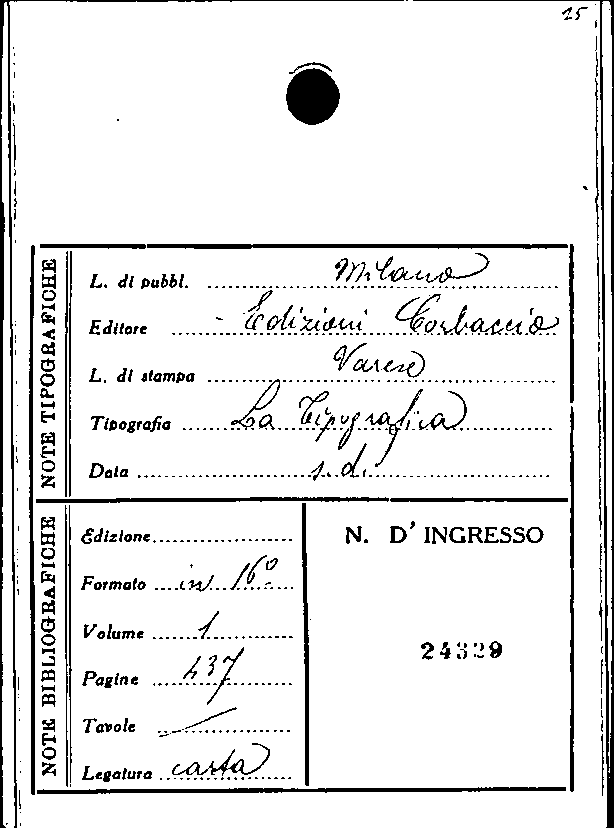 25
NOTE TIPOGRAFICHE
L. di pubbl. Milano
Editore - Edizioni Corbaccio
L. di stampa Varese
Tipografia La Tipografica
Data s.d.
NOTE BIBLIOGRAFICHE
Edizione
Formato in 16º
Volume 1
Pagine 437
Tavole /
Legatura carta
N. D' INGRESSO
24329